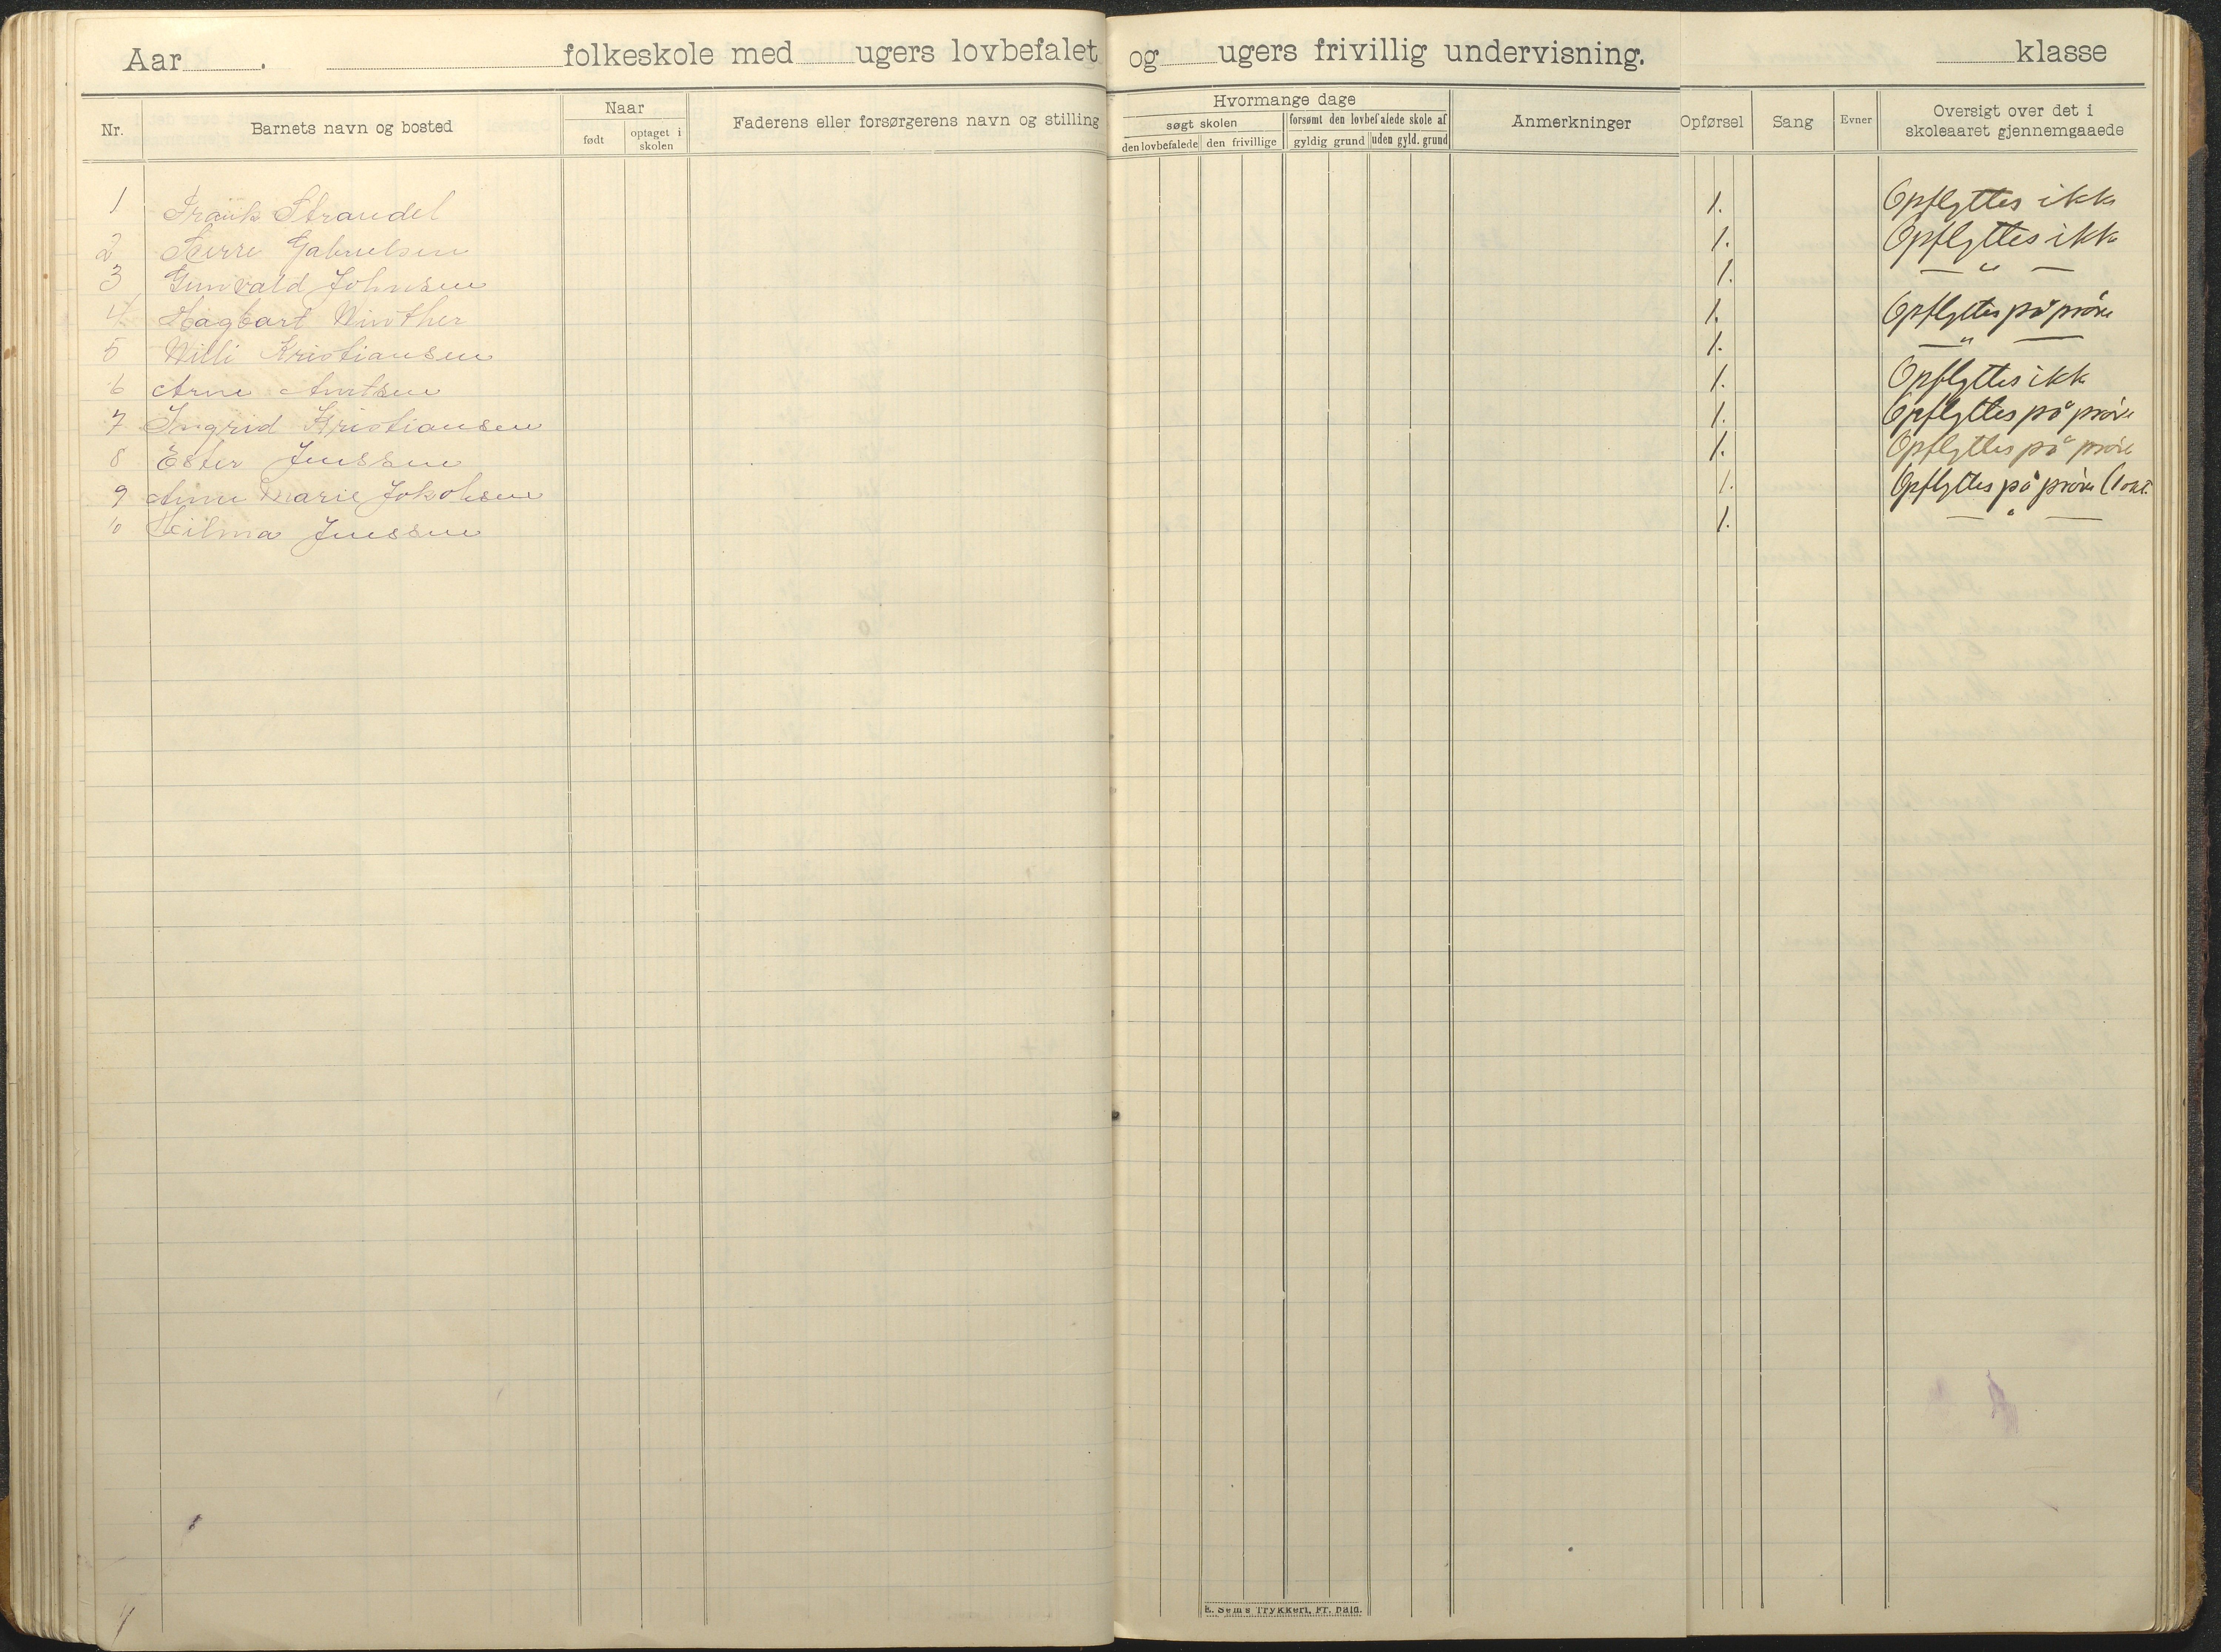 Aar . folkeskole med ugers lovbefalet og ugers frivillig undervisning. klasse
Nr. Barnets navn og bosted Naar Faderens eller forsørgerens navn og stilling Hvormange dage Anmerkninger Opførsel Sang Evner Oversigt over det i skoleaaret gjennemgaaede
født optaget i skolen søgt skolen forsømt den lovbefalede skole af
den lovbefalede den frivillige gyldig grund uden gyld. grund
1 Frank Strandel 1. Opflyttes ikke
2 Sverre Gabrielsen 1. Opflyttes ikke
3 Gunvald Johnsen 1. — " —
4 Hagbart Winther 1. Opflyttes på prøve
5 Willi Kristiansen 1. — " —
6 Arne Arntsen 1. Opflyttes ikke
7 Ingrid Kristiansen 1. Opflyttes på prøve
8 Ester Jenssen 1. Opflyttes på prøve
9 Anne Marie Jakobsen 1. Opflyttes på prøve (1 okt.
10 Hilma Jenssen 1. — " —
E. Sems Trykkeri, Fr.hald.